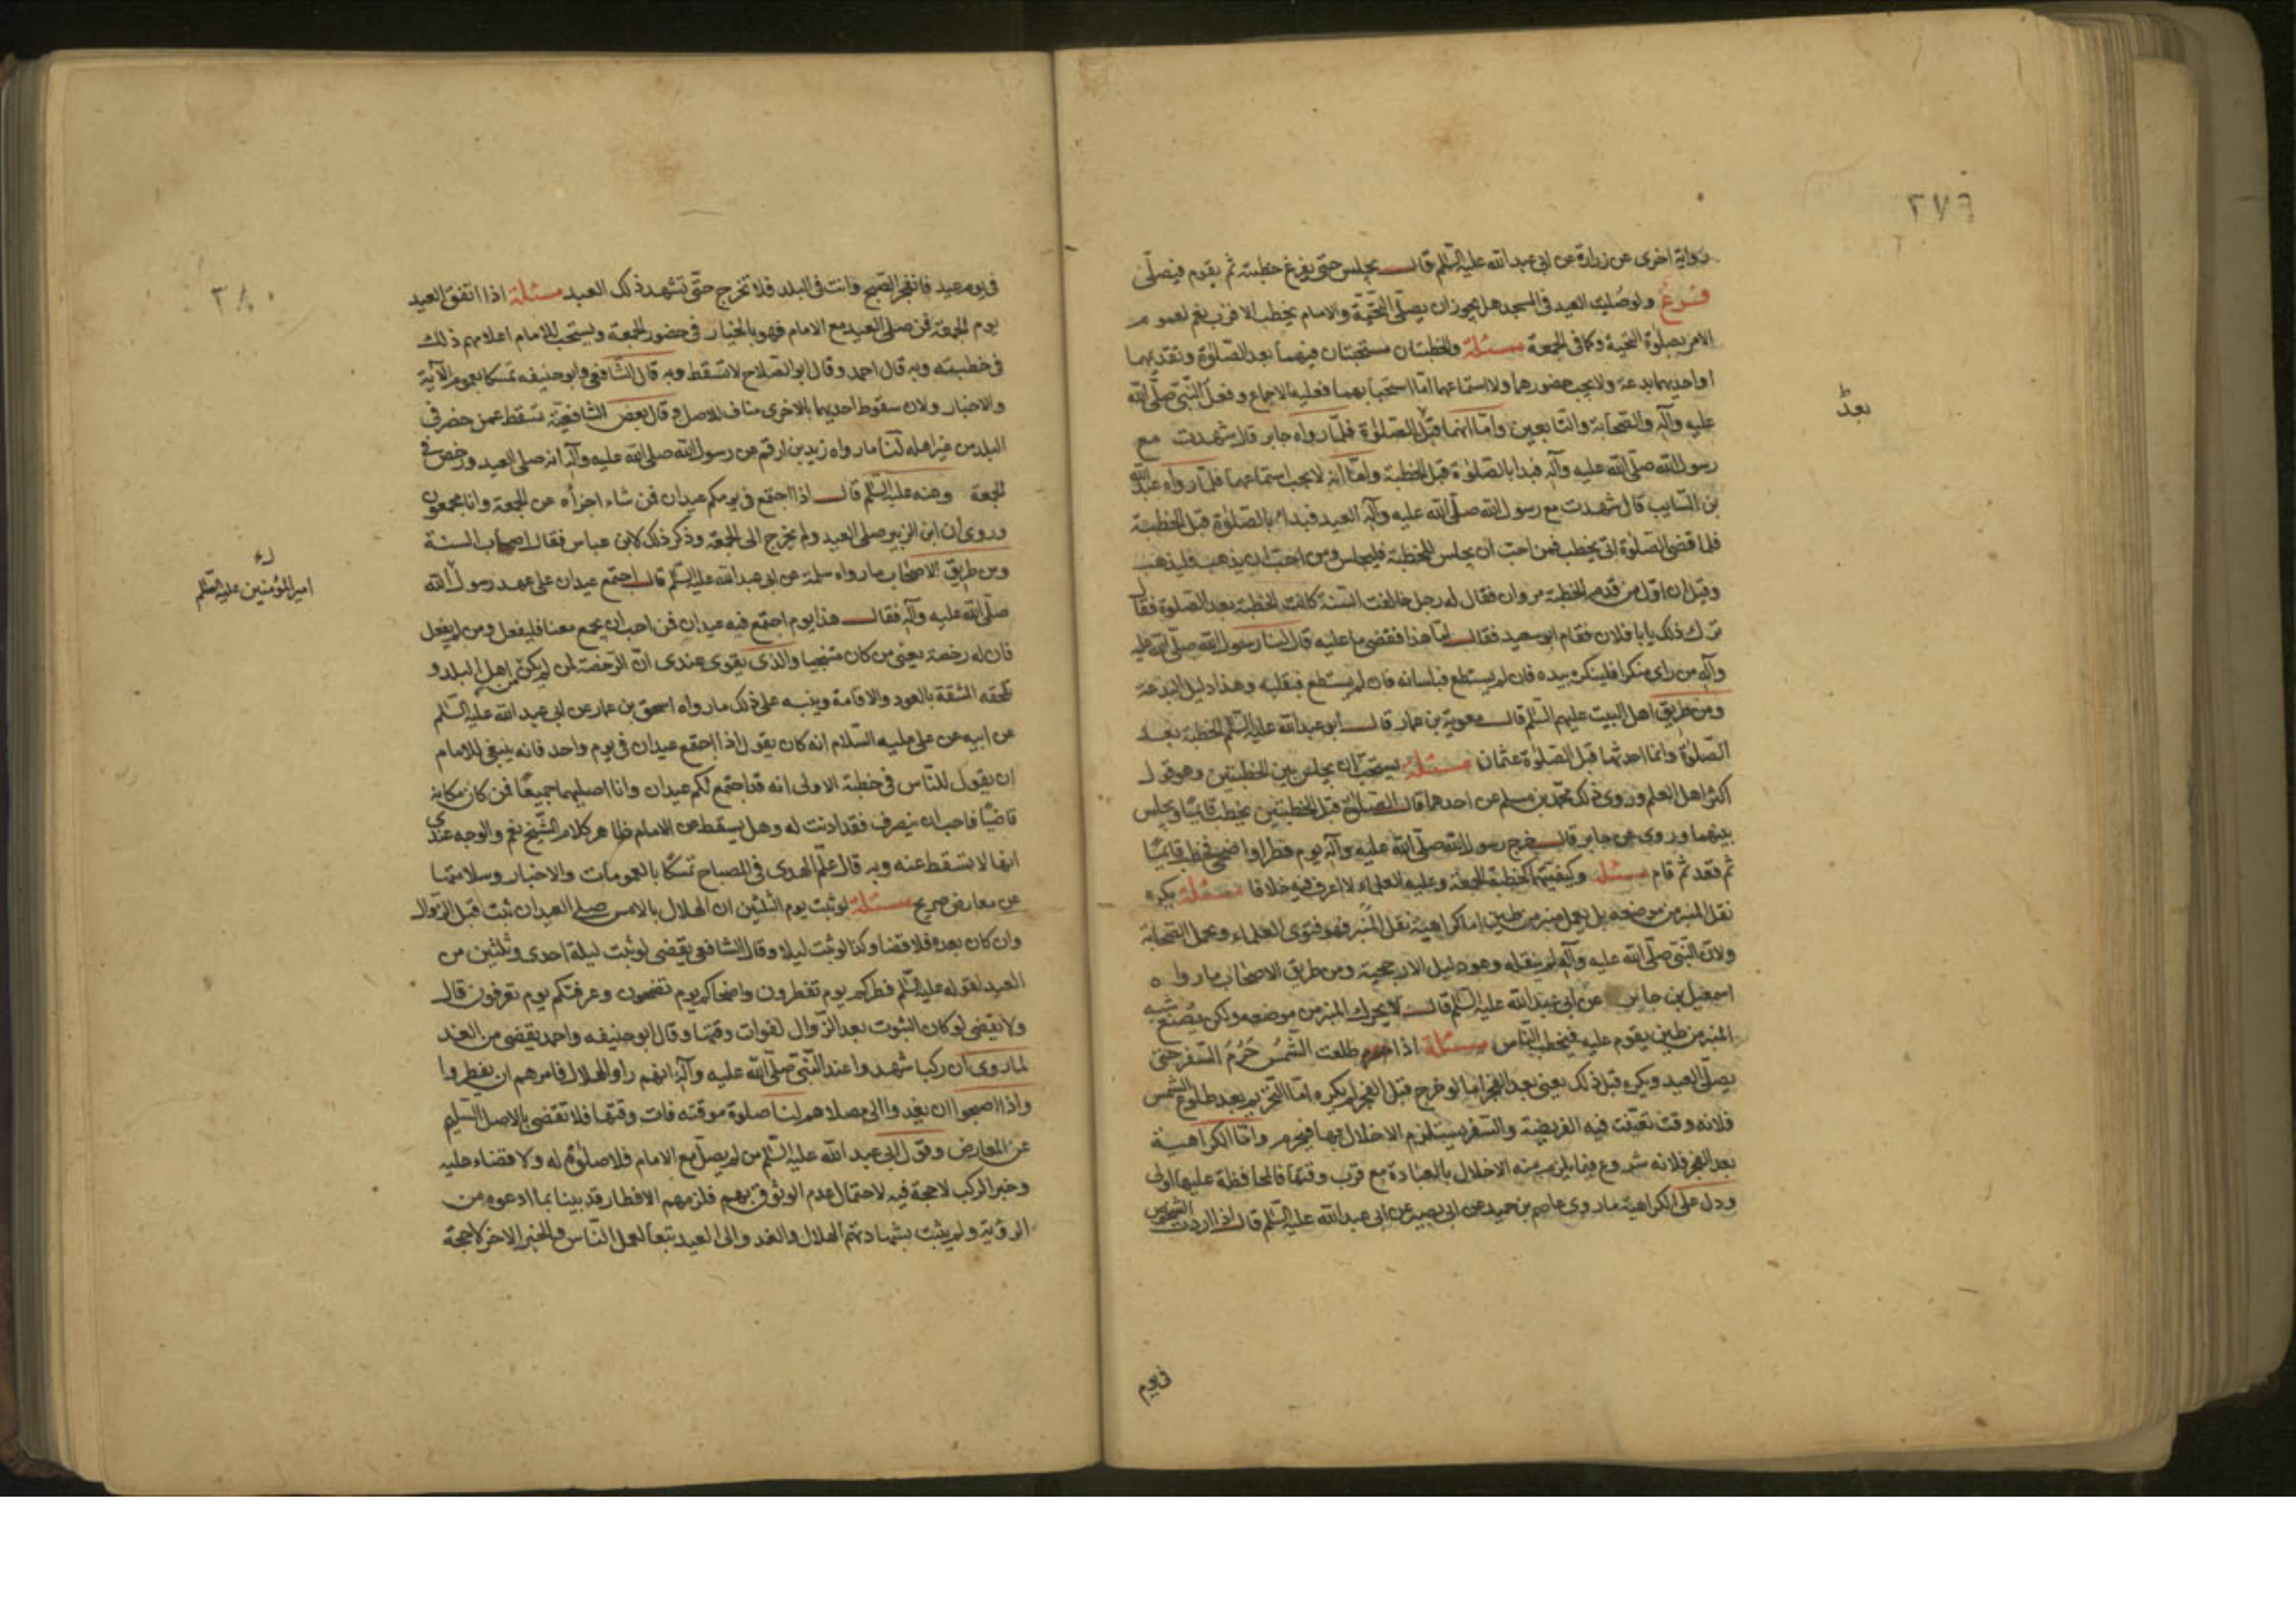 ٣٧٩
رواية اخرى عن زرارة عن ابى عبد الله عليه السلم قال يجلس حتى يفرغ خطبته ثم يقوم فيصلى
فرع ولو صليت العيد فى المسجد هل يجوز ان يصلى التحية والامام يخطب الاقرب نعم لعموم
الامر بصلوة التحية وكما فى الجمعة مسئلة والخطبتان مستحبتان فيهما بعد الصلوة وتقديمهما
او احديهما بدعة ولا يجب حضورهما ولا استماعهما اما استحبابهما فعليه الاجماع وفعل النبى صلى الله
عليه وآله والصحابة والتابعين واما انهما قبل الصلوة فلما رواه جابر قال شهدت مع
بعد
رسول الله صلى الله عليه وآله فبدا بالصلوة قبل الخطبة واما انه لا يجب استماعهما فلما رواه عبد الله
بن السايب قال شهدت مع رسول الله صلى الله عليه وآله العيد فبدا بالصلوة قبل الخطبة
فلما قضى الصلوة انى يخطب فمن احب ان يجلس للخطبة فليجلس ومن احب ان يذهب فليذهب
وقيل ان اول من قدم الخطبة مروان فقال له رجل خالفت السنة كانت الخطبة بعد الصلوة فقال
ترك ذلك يابا فلان فقام ابو سعيد فقال اما هذا فقضى ما عليه قال لنا رسول الله صلى الله عليه
وآله من راى منكرا فلينكره بيده فان لم يستطع فبلسانه فان لم يستطع فبقلبه وهذا دليل البدعة
ومن طريق اهل البيت عليهم السلم قال معوية بن عمار قال ابو عبد الله عليه السلم الخطبة بعد
الصلوة وانما احدثها قبل الصلوة عثمان مسئلة يستحب ان يجلس بين الخطبتين وهو قول
اكثر اهل العلم وروى ذلك محمد بن مسلم عن احدهما قال الصلوة قبل الخطبتين يخطب قائما ويجلس
بينهما وروى عن جابر قال خرج رسول الله صلى الله عليه وآله يوم فطر او اضحى فخطب قائما
ثم قعد ثم قام مسئلة وكيفيتهما كخطبة الجمعة وعليه العلماء لا اعرف فيه خلافا مسئلة يكره
نقل المنبر من موضعه بل يعمل منبر من طين اما كراهية نقل المنبر فهو فتوى العلماء وعمل الصحابة
ولان النبى صلى الله عليه وآله لم ينقله وهو دليل الارجحية ومن طريق الاصحاب ما رواه
اسمعيل بن جابر عن ابى عبد الله عليه السلم قال لا يحرك المنبر من موضعه ولكن يصنع شبه
المنبر من طين يقوم عليه فيخطب الناس مسئلة اذا طلعت الشمس حرم السفر حتى
يصلى العيد ويكره قبل ذلك يعنى بعد الفجر اما لو خرج قبل الفجر لم يكره اما التحريم بعد طلوع الشمس
فلانه وقت تعينت فيه الفريضة والسفر يستلزم الاخلال بها فيحرم واما الكراهية
بعد الفجر فلانه شروع فيما يلزم منه الاخلال بالعبادة مع قرب وقتها فالمحافظة عليها اولى
ودل على الكراهية ما روى عاصم بن حميد عن ابى بصير عن ابى عبد الله عليه السلم قال اذا اردت الشخوص
فى يوم
٣٨٠
فى يوم عيد فانفجر الصبح وانت فى البلد فلا تخرج حتى تشهد ذلك العيد مسئلة اذا اتفق العيد
يوم الجمعة فمن صلى العيد مع الامام فهو بالخيار فى حضور الجمعة ويستحب للامام اعلامهم ذلك
فى خطبته وبه قال احمد وقال ابو الصلاح لا تسقط وبه قال الشافعى وابو حنيفه تمسكا بعموم الآية
والاخبار ولان سقوط احديهما بالاخرى مناف للاصل وقال بعض الشافعية تسقط عمن حضر فى
البلد من غير اهله لنا ما رواه زيد بن ارقم عن رسول الله صلى الله عليه وآله انه صلى العيد ورخص فى
الجمعة وعنه عليه السلم قال اذا اجتمع فى يومكم عيدان فمن شاء اجزأه عن الجمعة وانا مجمعون
وروى ان ابن الزبير صلى العيد ولم يخرج الى الجمعة وذكر ذلك لابن عباس فقال اصاب السنة
ومن طريق الاصحاب ما رواه سلمة عن ابى عبد الله عليه السلم قال اجتمع عيدان على عهد رسول الله
امير المؤمنين عليه السلم
صلى الله عليه وآله فقال هذا يوم اجتمع فيه عيدان فمن احب ان يجمع معنا فليفعل ومن لم يفعل
فان له رخصة يعنى من كان متنحيا والذى يقوى عندى ان الرخصة لمن لم يكن من اهل البلد و
تلحقه المشقة بالعود والاقامة وينبه على ذلك ما رواه اسحق بن عمار عن ابى عبد الله عليه السلم
عن ابيه عن على عليه السلام انه كان يقول اذا اجتمع عيدان فى يوم واحد فانه ينبغى للامام
ان يقول للناس فى خطبة الاولى انه قد اجتمع لكم عيدان وانا اصليهما جميعا فمن كان مكانه
قاصيا فاحب ان ينصرف فقد اذنت له وهل يسقط عن الامام ظاهر كلام الشيخ نعم والوجه عندى
انها لا تسقط عنه وبه قال علم الهدى فى المصباح تمسكا بالعمومات والاخبار وسلامتها
عن معارض صريح مسئلة لو ثبت يوم الثلثين ان الهلال بالامس صلى العيد ان ثبت قبل الزوال
وان كان بعده فلا قضا وكذا لو ثبت ليلا وقال الشافعى يقضى لو ثبت ليلة احدى وثلثين من
العيد لقوله عليه السلم فطركم يوم تفطرون واضحاكم يوم تضحون وعرفتكم يوم تعرفون قال
ولا يقضى لو كان الثبوت بعد الزوال لفوات وقتها وقال ابو حنيفه واحمد يقضى من الغد
لما روى ان ركبا شهدوا عند النبى صلى الله عليه وآله انهم راوا الهلال فامرهم ان يفطروا
واذا اصبحوا ان يغدوا الى مصلاهم لنا صلوة موقته فات وقتها فلا تقضى بالاصل السليم
عن المعارض وقول ابى عبد الله عليه السلم من لم يصل مع الامام فلا صلوة له ولا قضاء عليه
وخبر الركب لا حجة فيه لاحتمال عدم الوثوق بهم فلزمهم الافطار قد بينا بما ادعوه من
الروية ولم يثبت بشهادتهم الهلال والغد والى العيد تبعا لعمل الناس والخبر الاخر لا حجة